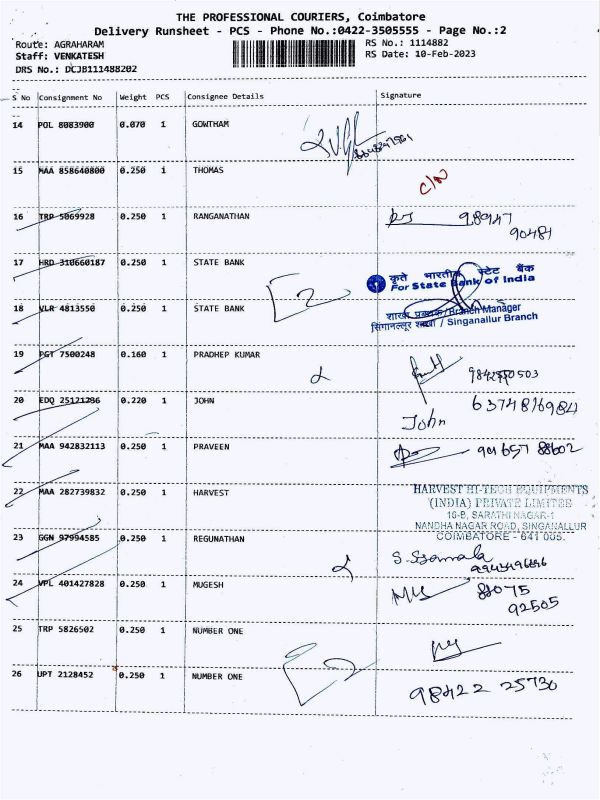 THE PROFESSIONAL COURIERS, Coimbatore
Delivery Runsheet - PCS - Phone No.:0422-3505555 - Page No.:2
Route: AGRAHARAM
Staff: VENKATESH
DRS No.: DCJB111488202
RS No.: 1114882
RS Date: 10-Feb-2023
S No Consignment No Weight PCS Consignee Details Signature
14 POL 8083900 0.070 1 GOWTHAM
15 MAA 858640800 0.250 1 THOMAS C/N
16 TRP 5069928 0.250 1 RANGANATHAN 98947
90484
17 HRD 310660187 0.250 1 STATE BANK
कृते भारतीय स्टेट बैंक
For State Bank of India
18 VLR 4813550 0.250 1 STATE BANK 2
शाखा प्रबंधक / Branch Manager
सिंगानल्लूर शाखा / Singanallur Branch
19 PGT 7500248 0.160 1 PRADHEP KUMAR
20 EDQ 25121286 0.220 1 JOHN 6374816984
John
21 MAA 942832113 0.250 1 PRAVEEN
22 MAA 282739832 0.250 1 HARVEST
HARVEST HI-TECH EQUIPMENTS
(INDIA) PRIVATE LIMITED
16-B, SARATHI NAGAR-1
NANDHA NAGAR ROAD, SINGANALLUR
COIMBATORE - 641 005.
23 GGN 97994585 0.250 1 REGUNATHAN
24 VPL 401427828 0.250 1 MUGESH
92505
25 TRP 5826502 0.250 1 NUMBER ONE
26 UPT 2128452 0.250 1 NUMBER ONE 2
98422 25730